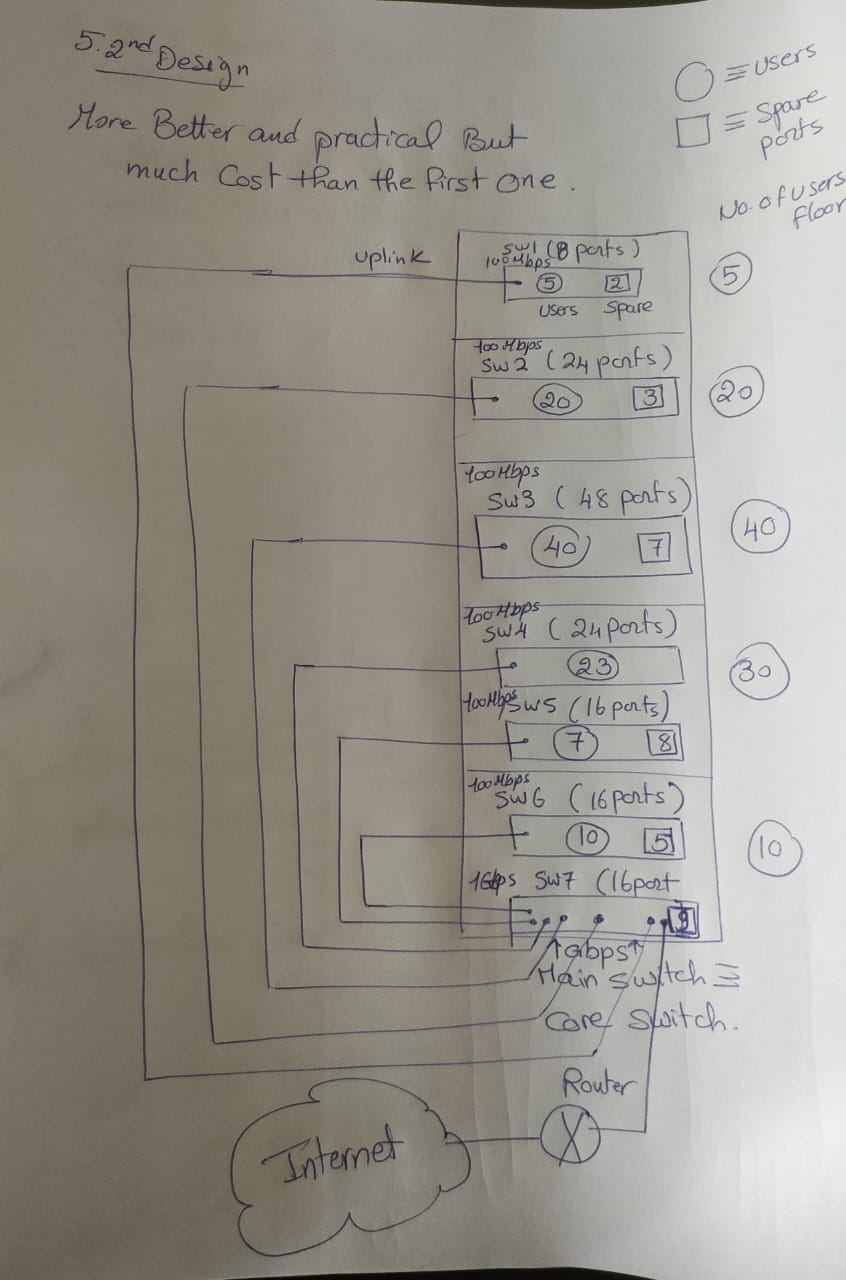 5. 2nd Design
○ ≡ Users
□ ≡ Spare
ports
More Better and practical But
much Cost than the first One.
No. of Users
floor
uplink
SW1 (8 ports)
100Mbps
5
2
Users
Spare
5
100Mbps
SW2 (24 ports)
20
3
20
100Mbps
SW3 (48 ports)
40
7
40
100Mbps
SW4 (24 ports)
23
30
100Mbps SW5 (16 ports)
7
8
100Mbps
SW6 (16 ports)
10
5
10
1Gbps SW7 (16port
9
↑Gbps↑
Main switch ≡
Core Switch.
Router
Internet